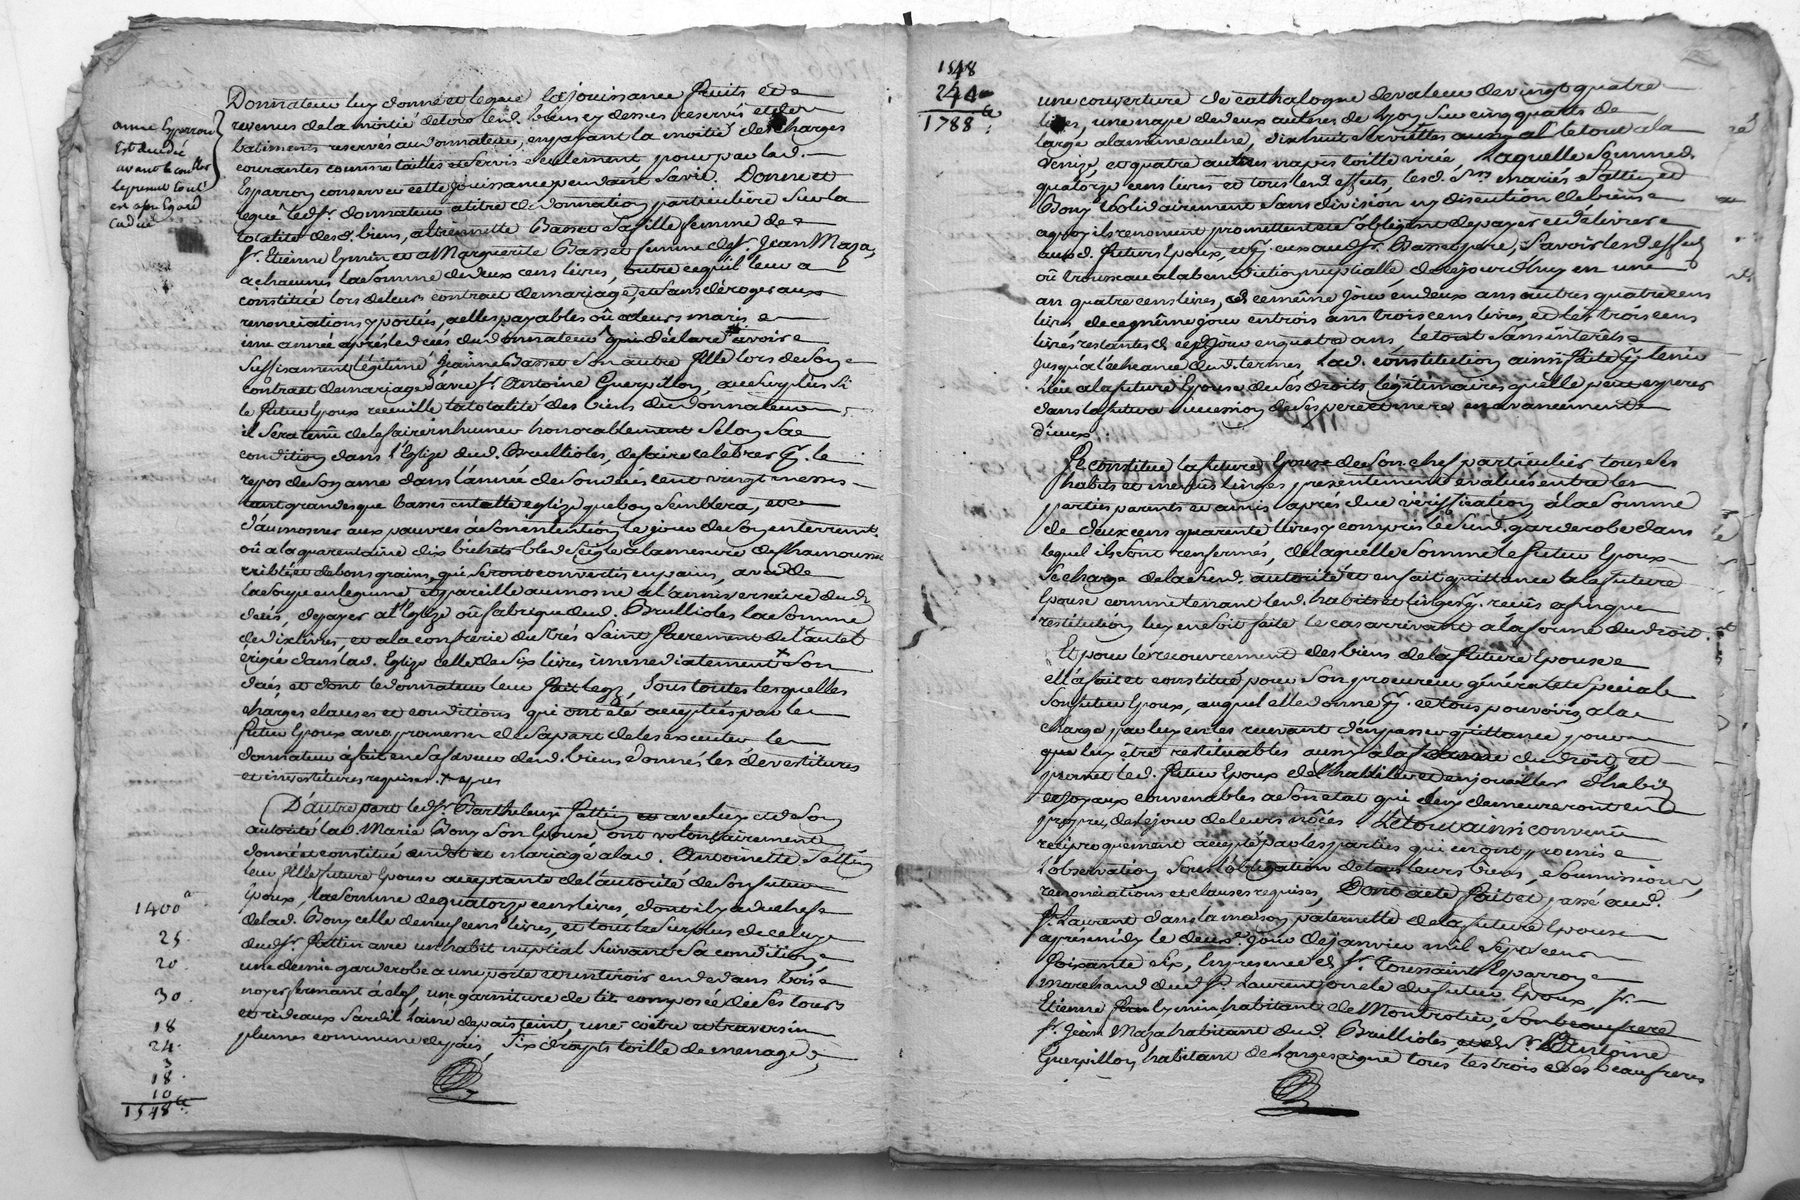 Donnateur luy donne et legue la jouissance fruits et
revenus de la moitié de tous lesd. biens cy dessus reservés et des
batiments reservés au donnateur, en payant la moitié des charges
courantes comme tailles et servis seulement, pour par lad.
Esparron conserver cette jouissance pendant sa vie. Donne et
legue led. sr. donnateur a titre de donnation particulière sur la
totalité desd. biens, a Basset sa fille femme de
sr. Etienne et a Marguerite Basset femme de sr. Jean Maza,
a chacunes la somme de deux cens livres, outre ce qu'il leur a
constitué lors de leurs contract de mariage, et sans déroger aux
renonciations y portés, a elles payables où a leurs maris
une année après le décès du donnateur qui déclare avoir
suffisament légitimé Jeanne Basset son autre fille lors de son
contract de mariage avec sr. Antoine Guerpillon, au surplus si
le futur Epoux recueille la totalité des biens du donnateur,
il sera tenu de le faire inhumer honorablement selon sa
condition dans l'Eglize dud. Brullioles, de faire celebrer le
repos de son ame dans l'année de son décès cent vingt messes
tant grandes que basses en telle eglize que bon semblera, et
d'aumosner aux pauvres à son intention le jour de son enterrement
où a la quarentaine dix bichets bled seigle a la mesure de
criblé et de bons grains, qui seront convertis en pain, avec de
la soupe en legume et pareille aumosne a l'anniversaire dud.
décès, de payer a l'Eglize où fabrique dud. Brullioles la somme
de dix livres, et a la confrerie du très Saint Sacrement de l'autel
érigée dans lad. Eglize celle de six livres immediatement + son
décès et dont le donnateur leur fait legs, sous toutes lesquelles
charges clauses et conditions qui ont été acceptées par le
futur Epoux avec promesse de sa part de les executer le
donnateur a fait en sa faveur des d. biens donnés les dévestitures
et investitures requises. + apres
D'autre part led. sr. Barthelemy Fattin et avec luy et de son
autorité lad. Marie Bony son Epouse ont volontairement
donné et constitué en dot et mariage a lad. Antoinette Fattin
leur fille future Epouse acceptante de l'autorité de son futur
Epoux, la somme de quatorze cens livres, dont il y a du chef
de lad. Bony celle de neuf cens livres, et tout le surplus de celuy
dud. sr. Fattin avec un habit nuptial suivant sa condition
une demie garderobe a une porte et un tiroir en dedans bois
noyer fermant à clef, une garniture de lit composée de ses tours
et rideaux sardil laine de païs teint, une coëtre et traversin
plumes commune de païs, six draps toille de menage,
anne Esparron
Est decedé
avant le
le present Est
en a son Egard
caduc
1400
25
20
30
18
24
3
18
10
1548
1548
240
1788
une couverture de cathalogne de valeur de vingt quatre
livres, une nape de deux aulnes de long sur cinq quarts de
large a la meme aulne, dix huit serviettes aussy le tout a la
Venize, et quatre autres napes toille virée, Laquelle somme d.
quatorze cens livres et tous lesd. effets, lesd. srs. mariés Fattin et
Bony solidairement sans division ny discution de biens
a quoy ils renoncent promettent et s'obligent de payer et délivrer
aud. futurs Epoux, et aud. sr. Basset pere, savoir lesd. effets
où trousseau a la benediction nuptialle de ce jourd'huy en une
an quatre cens livres, de ce même jour en deux ans autres quatre cens
livres de ce même jour en trois ans trois cens livres et les trois cens
livres restantes de ced. jour en quatre ans, le tout sans interêts
jusqu'a l'echeance desd. termes, lad. constitution ainsy faite tenir
lieu a la future Epouse de ses droits légitimaires qu'elle peut esperer
dans la future succession de ses pere et mere en avancement
d'iceux.
Se constitue la future Epouse de son chef particulier tous ses
habits et menus linges presentement évalués entre les
parties parents et amis après due vériffication à la somme
de deux cens quarente livres y compris le d. garderobe dans
lequel ils sont renfermés, de laquelle somme le futur Epoux
se charge de la susd. autorité et en fait quittance a la future
Epouse comme tenant lesd. habits et linges reçûs a fin que
restitution luy en soit faite le cas arrivant a la forme du droit.
Et pour le recouvrement des biens de la future Epouse
elle a fait et constitué pour son procureur général et special
son futur Epoux, auquel elle donne et tous pouvoirs a la
charge par luy en les recevant d'en passer quittance pour
que luy être restituables aussy a la forme du droit, et
promet led. futur Epoux de l'habiller et enjoüailler d'habits
et joyaux convenables a son etat qui luy demeureront en
propre, des le jour de leurs nôces. Le tout ainsi convenû
reciproquement accepté par les parties qui en ont promis
l'observation sous l'obligation de tous leurs biens, soumissions,
renonciations et clauses requises, Dont acte fait et passé aud.
St. Laurent dans la maison paternelle de la future Epouse
après midy le deuxe. jour de janvier mil sept cens
soixante six, En presence de sr. Toussaint Esparron
marchand dud. St. Laurent oncle du futur Epoux, sr.
Etienne habitant de Montrotier, son beau frere
sr. Jean Maza habitant dud. Brullioles, et de sr. Antoine
Guerpillon habitant de Longessaigne tous les trois ses beaufreres